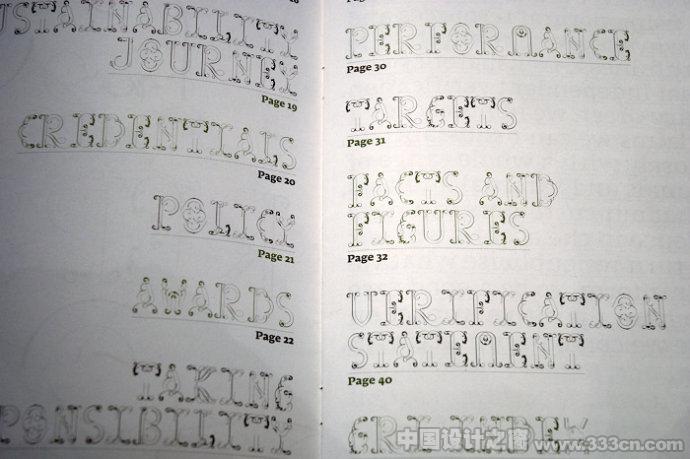 USTAINABILITY
JOURNEY
Page 19
CREDENTIALS
Page 20
POLICY
Page 21
AWARDS
Page 22
TAKING
PONSIBILITY
PERFORMANCE
Page 30
TARGETS
Page 31
FACTS AND
FIGURES
Page 32
VERIFICATION
STATEMENT
Page 40
GRI INDEX
中国设计之窗 www.333cn.com